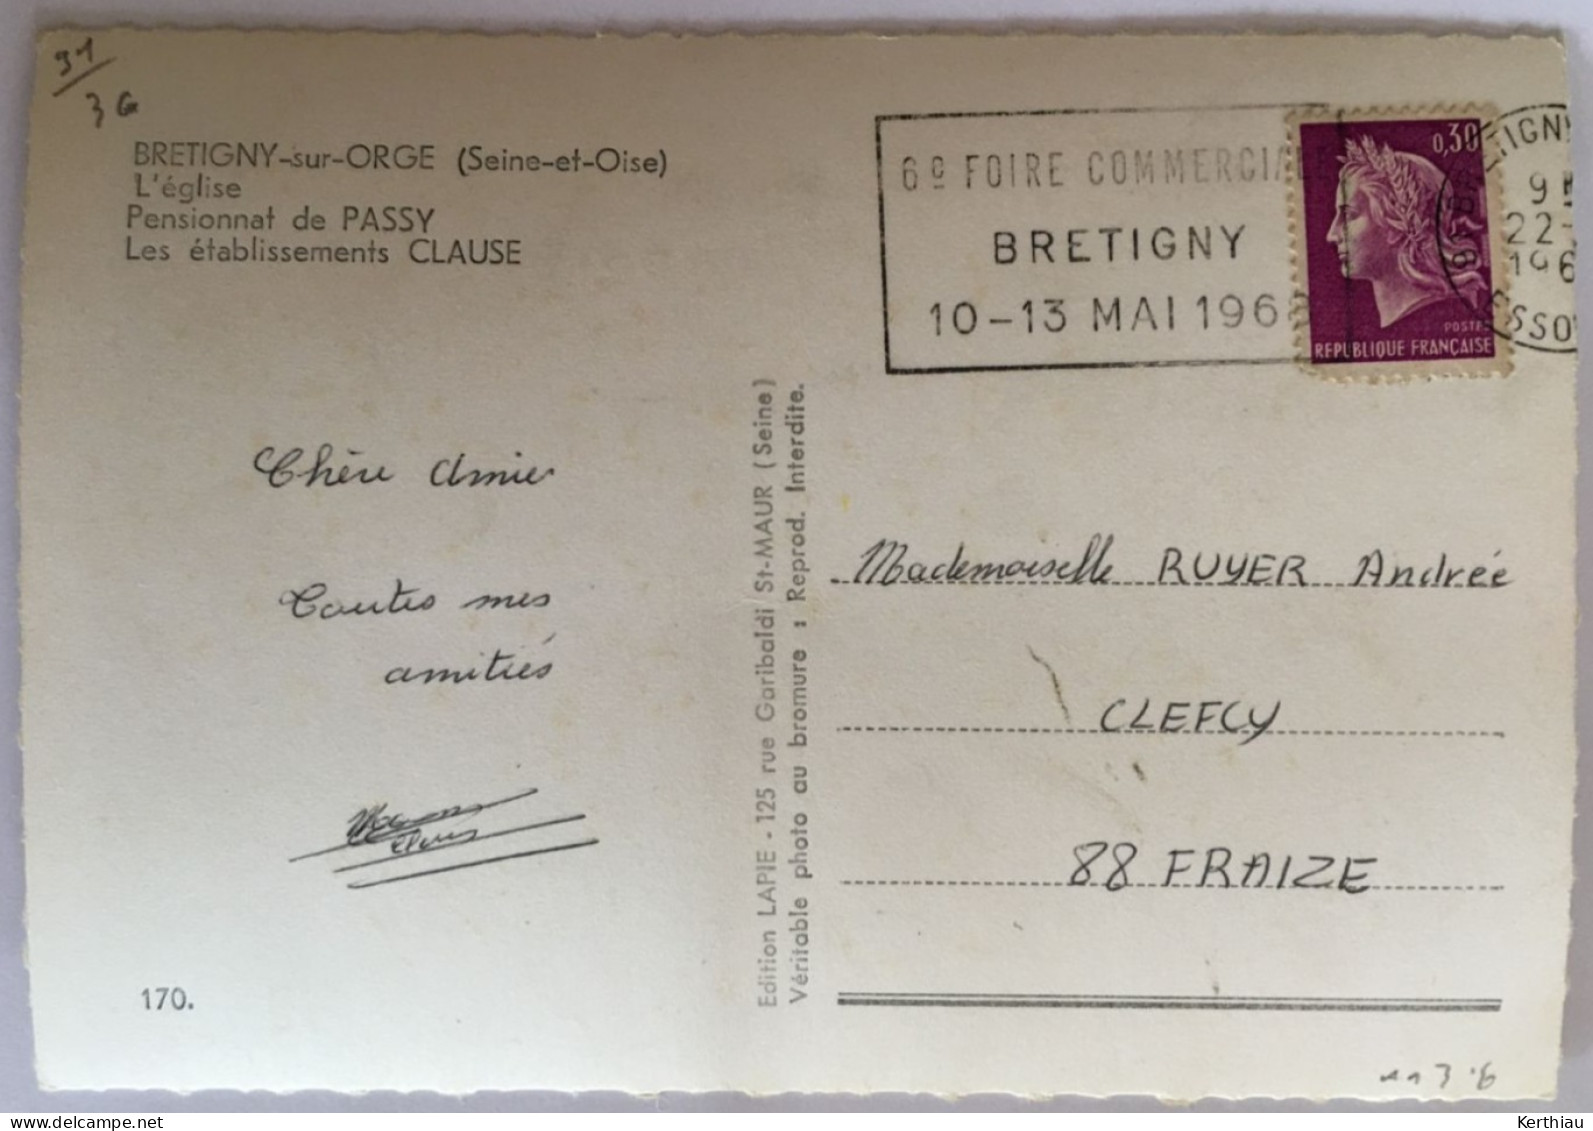 91
36
BRETIGNY-sur-ORGE (Seine-et-Oise)
L'église
Pensionnat de PASSY
Les établissements CLAUSE
6e FOIRE COMMERCIA
BRETIGNY
10-13 MAI 196
0,30
POSTES
REPUBLIQUE FRANÇAISE
91 BRETIGNY
9 H
22-
196
ESSO
Chère Amie
Toutes mes
amitiés
170.
Edition LAPIE - 125 rue Garibaldi St-MAUR (Seine)
Véritable photo au bromure : Reprod. Interdite.
Mademoiselle RUYER Andrée
CLEFCY
88 FRAIZE
Kerthiau